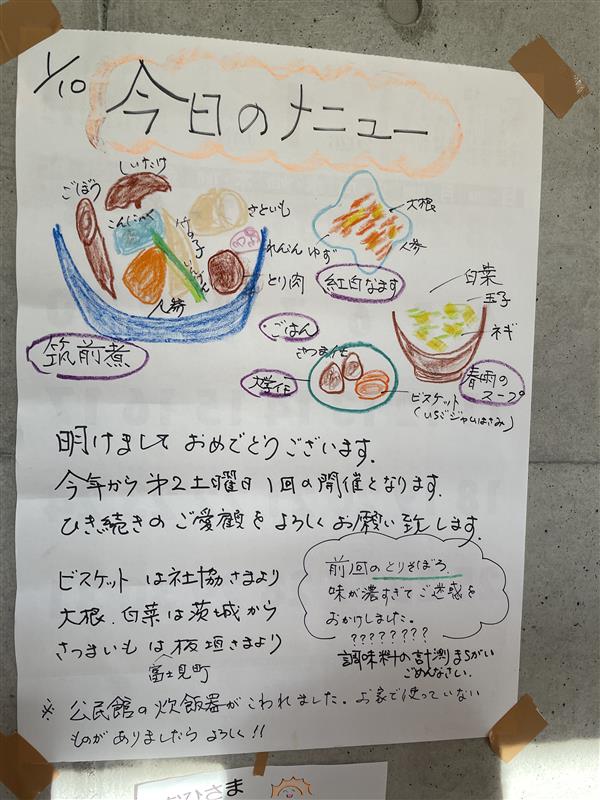 1/10
今日のメニュー
しいたけ
ごぼう
こんにゃく
竹の子
さといも
れんこん
ゆず
いんげん
とり肉
人参
筑前煮
大根
人参
紅白なます
ごはん
白菜
玉子
ネギ
春雨の
スープ
さつま芋
大学芋
ビスケット
(いちごジャムはさみ)
明けまして おめでとうございます.
今年から 第2土曜日 1回の開催となります.
ひき続きの ご愛顧を よろしく お願い致します.
ビスケット は社協さまより
大根.白菜は茨城から
さつまいも は 板垣さまより
富士見町
前回のとりそぼろ
味が濃すぎて ご迷惑を
おかけしました.
????????
調味料の計測まちがい
ごめんなさい.
※ 公民館の炊飯器がこわれました. お家で使っていない
ものが ありましたら よろしく!!